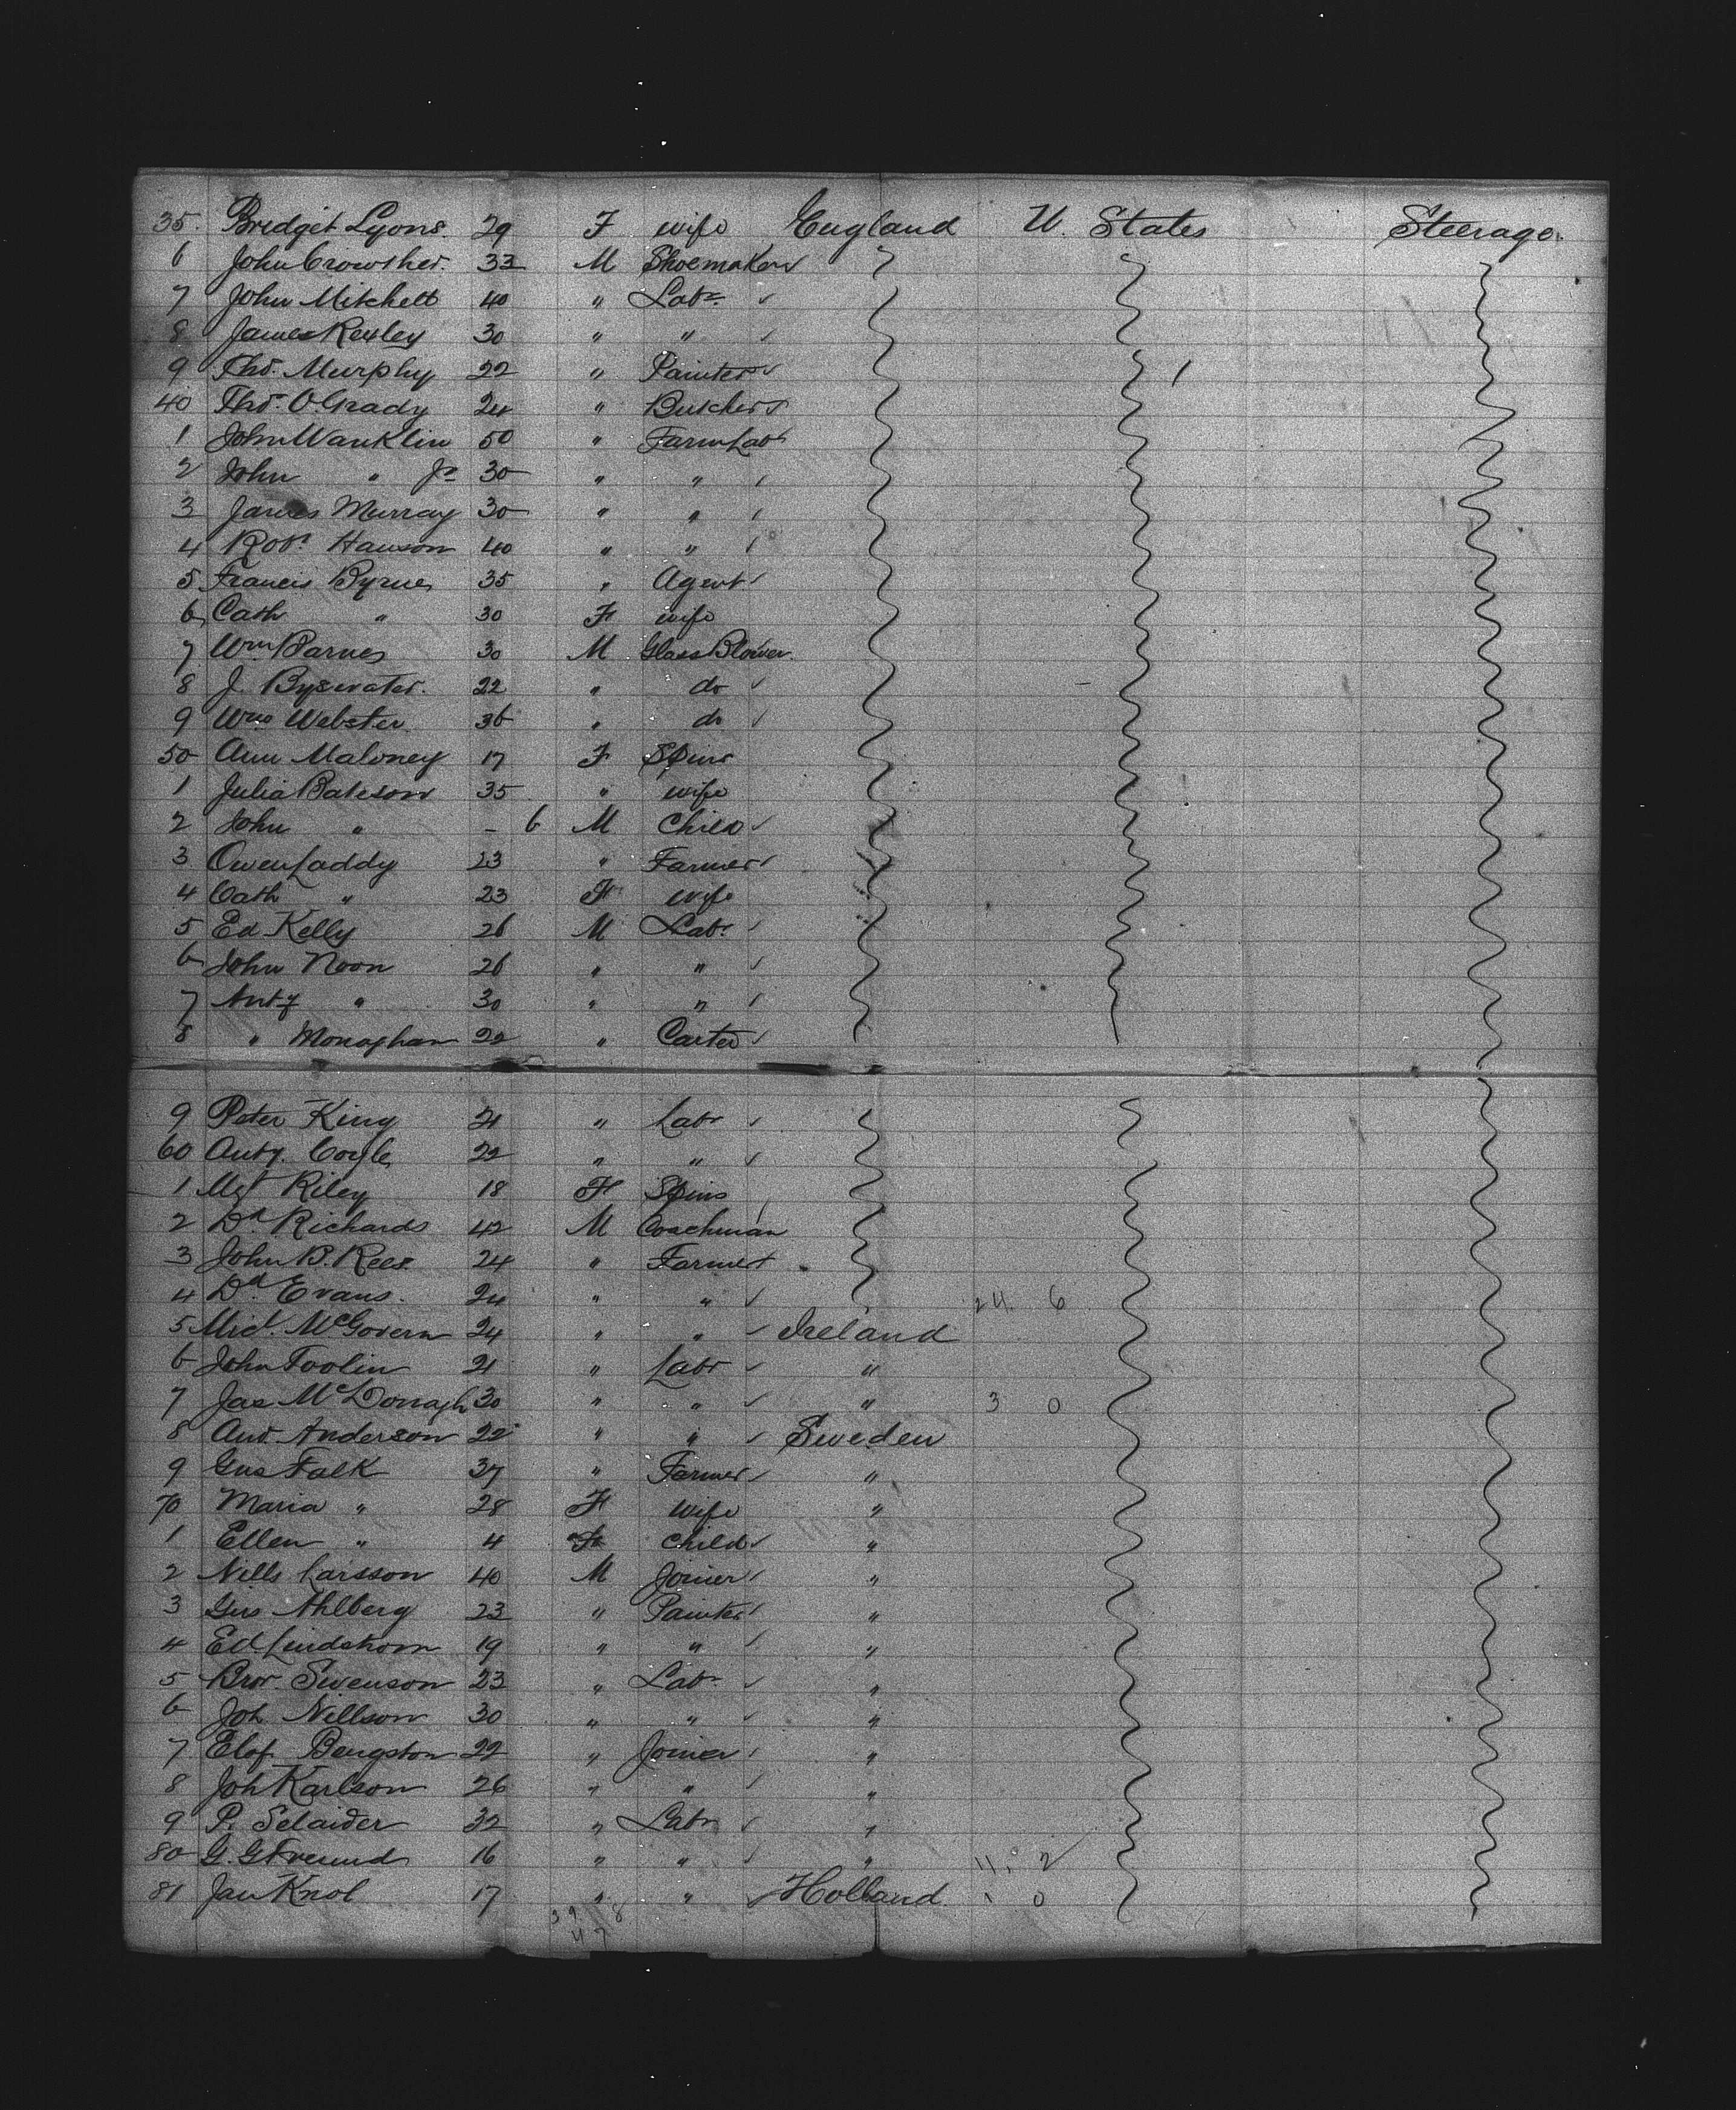 35. Bridget Lyons. 29 F wife England U. States Steerage.
6 John Crowther. 33 M Shoemaker
7 John Mitchell 40 " Labr.
8 James Rexley 30 " "
9 Thos. Murphy 22 " Painter 1
40 Thos. O'Grady 24 " Butcher
1 John Wanklin 50 " Farm Labr
2 John " Jr 30 " "
3 James Murray 30 " "
4 Robt. Hanson 40 " "
5. Francis Byrne 35 " Agent
6 Cath " 30 F wife
7 Wm. Barnes 30 M Glass Blower.
8 J. Bysevater. 22 " do
9 Wm Webster 36 " do
50 Ann Maloney 17 F Spins
1 Julia Bateson 35 " wife
2 John " - 6 M Child
3 Owen Laddy 23 " Farmer
4 Cath " 23 F wife
5 Ed Kelly 26 M Labr.
6 John Noon 26 " "
7 Anty " 30 " "
8 " Monaghan 22 " Carter
9 Peter King 21 " Labr
60 Anty. Coyle 22 " "
1 Mgt Riley 18 F Spins
2 Dd Richards 42 M Coachman
3 John B. Rees 24 " Farmer
4 Dd Evans. 24 " " 24 6
5 Micl. McGovern 24 " " Ireland
6 John Toolin 21 " Labr "
7 Jas McDonagh 30 " " " 3 0
8 And. Anderson 22 " " Sweden
9 Gus Falk 37 " Farmer "
70 Maria " 28 F wife "
1 Ellen " 4 F child "
2 Nills Larsson 40 M Joiner "
3 Gus Ahlberg 23 " Painter "
4 Ed. Lindstrom 19 " " "
5 Bror Swenson 23 " Labr "
6 Joh Nillson 30 " " "
7 Elof Bengston 22 " Joiner "
8 Joh Karlson 26 " " "
9 P. Selaider 32 " Labr "
80 G. G. Freund 16 " " " 11 2
81 Jan Knol 17 " " Holland 1 0
39 8
47